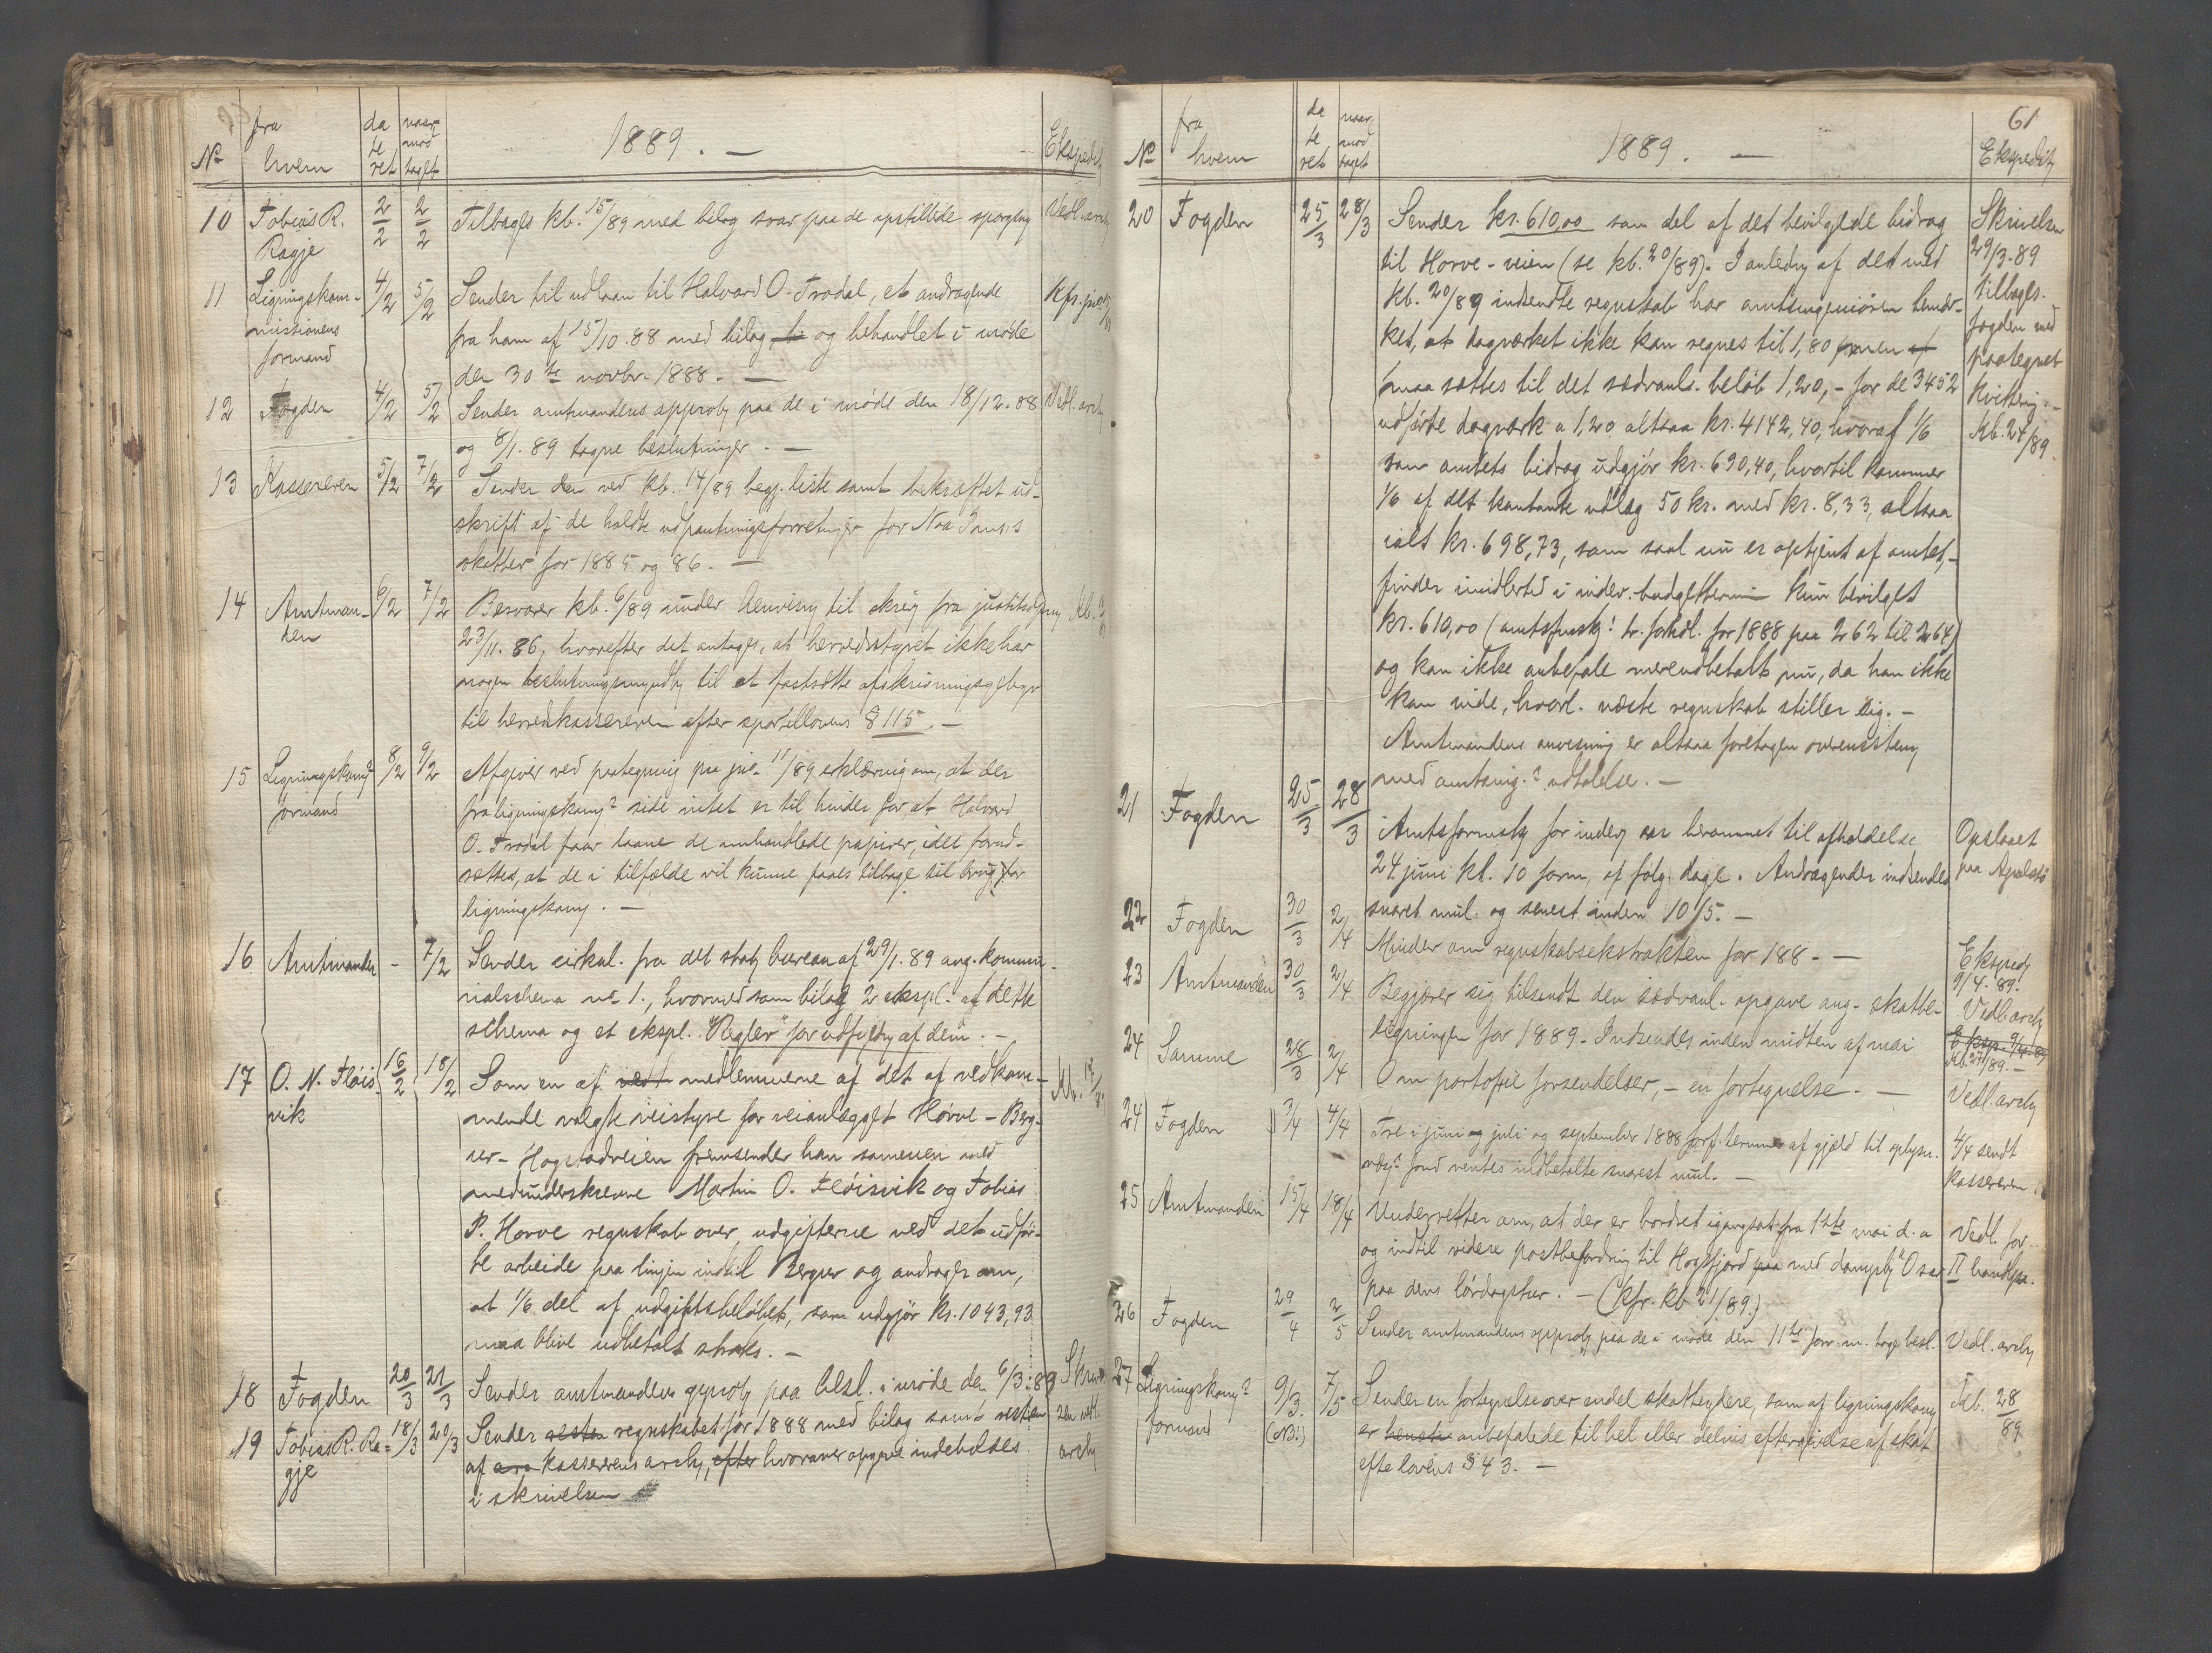 No
fra
hvem
da
te
ret
naar
mod
taget
1889. —
Ekspedit
10 Tobias R. Ragje 2/2 2/2 Tilbages kb. 15/89 med bilag svar paa de opstillede spørgsm Vedl. arch
11 Ligningskom- 4/2 5/2 Sender til udlaan til Halvard O. Frodal, et andragende Kfr. jnl
missionens fra ham af 15/10.88 med bilag og behandlet i møde
formand den 30te novbr. 1888. —
12 Fogden 4/2 5/2 Sender amtmandens approb paa de i møde den 18/12.88 Vedl. arch
og 8/1.89 tagne beslutninger. —
13 Kassereren 5/2 7/2 Sender den ved kb. 14/89 begj. liste samt bekræftet ud-
skrift af de holdte udpantningsforretninger for
skatter for 1885 og 86. —
14 Amtman- 6/2 7/2 Besvarer kb. 6/89 under henvisng til skriv fra justitsdepng Kb.
den 23/11.86, hvorefter det antages, at herredsstyret ikke har
nogen beslutningsmyndh til at fastsætte afskrivningsgebyr
til herredskassereren efter sportellovens § 115. —
15 Ligningskomn 8/2 9/2 Afgiver ved paategning paa jnl. 11/89 erklæring om, at der
formand fra ligningskomn side intet er til hinder for, at Halvard
O. Frodal faar laane de omhandlede papirer, idet forud-
sættes, at de i tilfælde vil kunne faaes tilbage til brug for
ligningskomn. —
16 Amtmanden - 7/2 Sender cirkul. fra det stat. bureau af 29/1.89 ang. kommu-
nalschema no 1., hvormed som bilag 2 ekspl. af dette
schema og et ekspl. "Regler" for udfyldn af dem. —
17 O. N. Fløis- 16/2 18/2 Som en af vedk medlemmerne af det af vedkom-
vik mende valgte veistyre for veianlægget Hørve - Berg-
er - Hogstadveien fremsender han sammen med
medunderskrevne Martin O. Fløisvik og Tobias
P. Horve regnskab over udgifterne ved det udfør-
te arbeide paa linjen indtil Berger og andrager om,
at 1/6 del af udgiftsbeløbet, som udgjør kr. 1043,93
maa blive udbetalt straks. —
18 Fogden 20/3 21/3 Sender amtmandens approb paa besl. i møde den 6/3.89
19 Tobias R. Ra- 18/3 20/3 Sender resten regnskabet for 1888 med bilag samt resten
gje af kassererens arch, efter hvorover opgave indeholdes arch
i skrivelsen
61
No
fra
hvem
da
te
ret
naar
mod
taget
1889. —
Ekspedit
20 Fogden 25/3 28/3 Sender kr. 610,00 som del af det bevilgede bidrag Skrivelsen
til Horve-veien (se kb. 20/89). I anledn af det med 29/3.89
kb. 20/89 indsendte regnskab har amtsingeniøren bemær- tilbages.
ket, at dagværket ikke kan regnes til 1,80 men fogden med
maa sættes til det sædvanl. beløb 1,20, - for de 3452 paategnet
udførte dagværk a 1,20 altsaa kr. 4142,40, hvoraf 1/6 kvittering. -
som amtets bidrag udgjør kr. 690,40, hvortil kommer Kb. 24/89.
1/6 af det kontante udlæg 50 kr. med kr. 8,33, altsaa
ialt kr. 698,73, som saal nu er optjent af amtet, -
finder imidlertid i indev. budgettermin kun bevilget
kr. 610,00 (amtsfmsk! tr. forhdl. for 1888 paa 262 til 264)
og kan ikke anbefale mere udbetalt nu, da han ikke
kan vide, hvorl. næste regnskab stiller sig. —
Amtmandens anvisning er altsaa foretagen overensstem
med amtsing. udtalelse. —
21 Fogden 25/3 28/3 Amtsformsk for indev aar berammet til afholdelse Opslaaet
24 juni kl. 10 form. og følg. dage. Andragender indsendes paa
snarest mul. og senest inden 10/5. —
22 Fogden 30/3 2/4 Minder om regnskabsekstrakten for 188- — Eksped 9/4.89.
23 Amtmanden 30/3 2/4 Begjærer sig tilsendt den sædvanl. opgave ang. skatte- Vedl. arch
ligningen for 1889. Indsendes inden midten af mai Eksp. 9/4.89
24 Samme 28/3 2/4 Om portofrie forsendelser, - en fortegnelse. — Kb. 27/89. - Vedl. arch
24 Fogden 3/4 4/4 Tre i juni og juli og september 1888 forf. terminer af gjæld til oplysn. 4/4 sendt
fond ventes indbetalte snarest mul. — kassereren.
25 Amtmanden 15/4 18/4 Underretter om, at der er bordret igangsat fra 1ste mai d. a Vedl. for-
og indtil videre postbefordring til Høgsfjord paa med dampsk "Oscar II"
paa dens lørdagstur. — (kfr. kb 21/89.)
26 Fogden 29/4 2/5 Sender amtmandens approb paa de i møde den 11te forr. m. tagne besl. Vedl. arch
27 Ligningskomn 9/3. 7/5 Sender en fortegnelse over endel skatteydere, som af ligningskomn Kb. 28/89
formand (NB!) er anbefalede til hel eller delvis eftergivelse af skat
efter lovens § 43. —